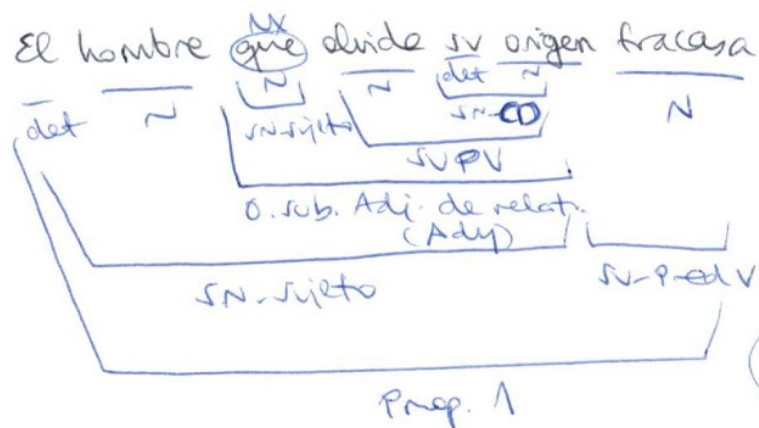 NX
El hombre que olvida su origen fracasa
det N
N N N
det SN-sujeto SN-CD N
SV PV
O. sub. Adj. de relat.
(Ady)
SN-sujeto SV-Pred V
Prop. 1